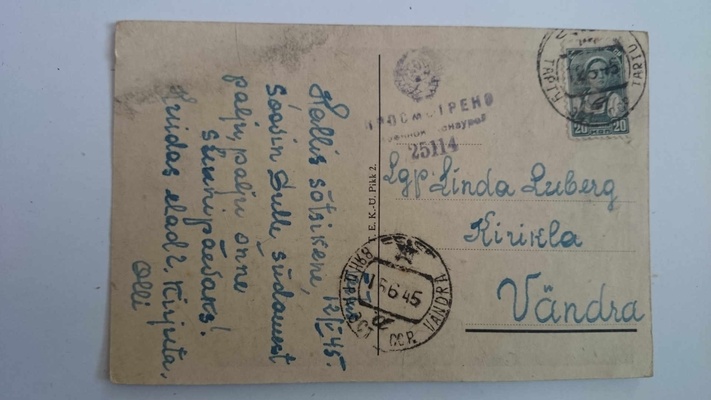 Kallis sõtsikene 12/V 45.
Soovin Sulle südamest
palju, palju õnne
sünnipäevaks!
Kuidas elad?. Kirjuta.
Olli
T. E. K.-U. Pikk 2.
ПРОСМОТРЕНО
Военной Цензурой
25114
TARTU
20 20
Lgp. Linda Luberg
Kirikla
Vändra
6 45
СССР VÄNDRA